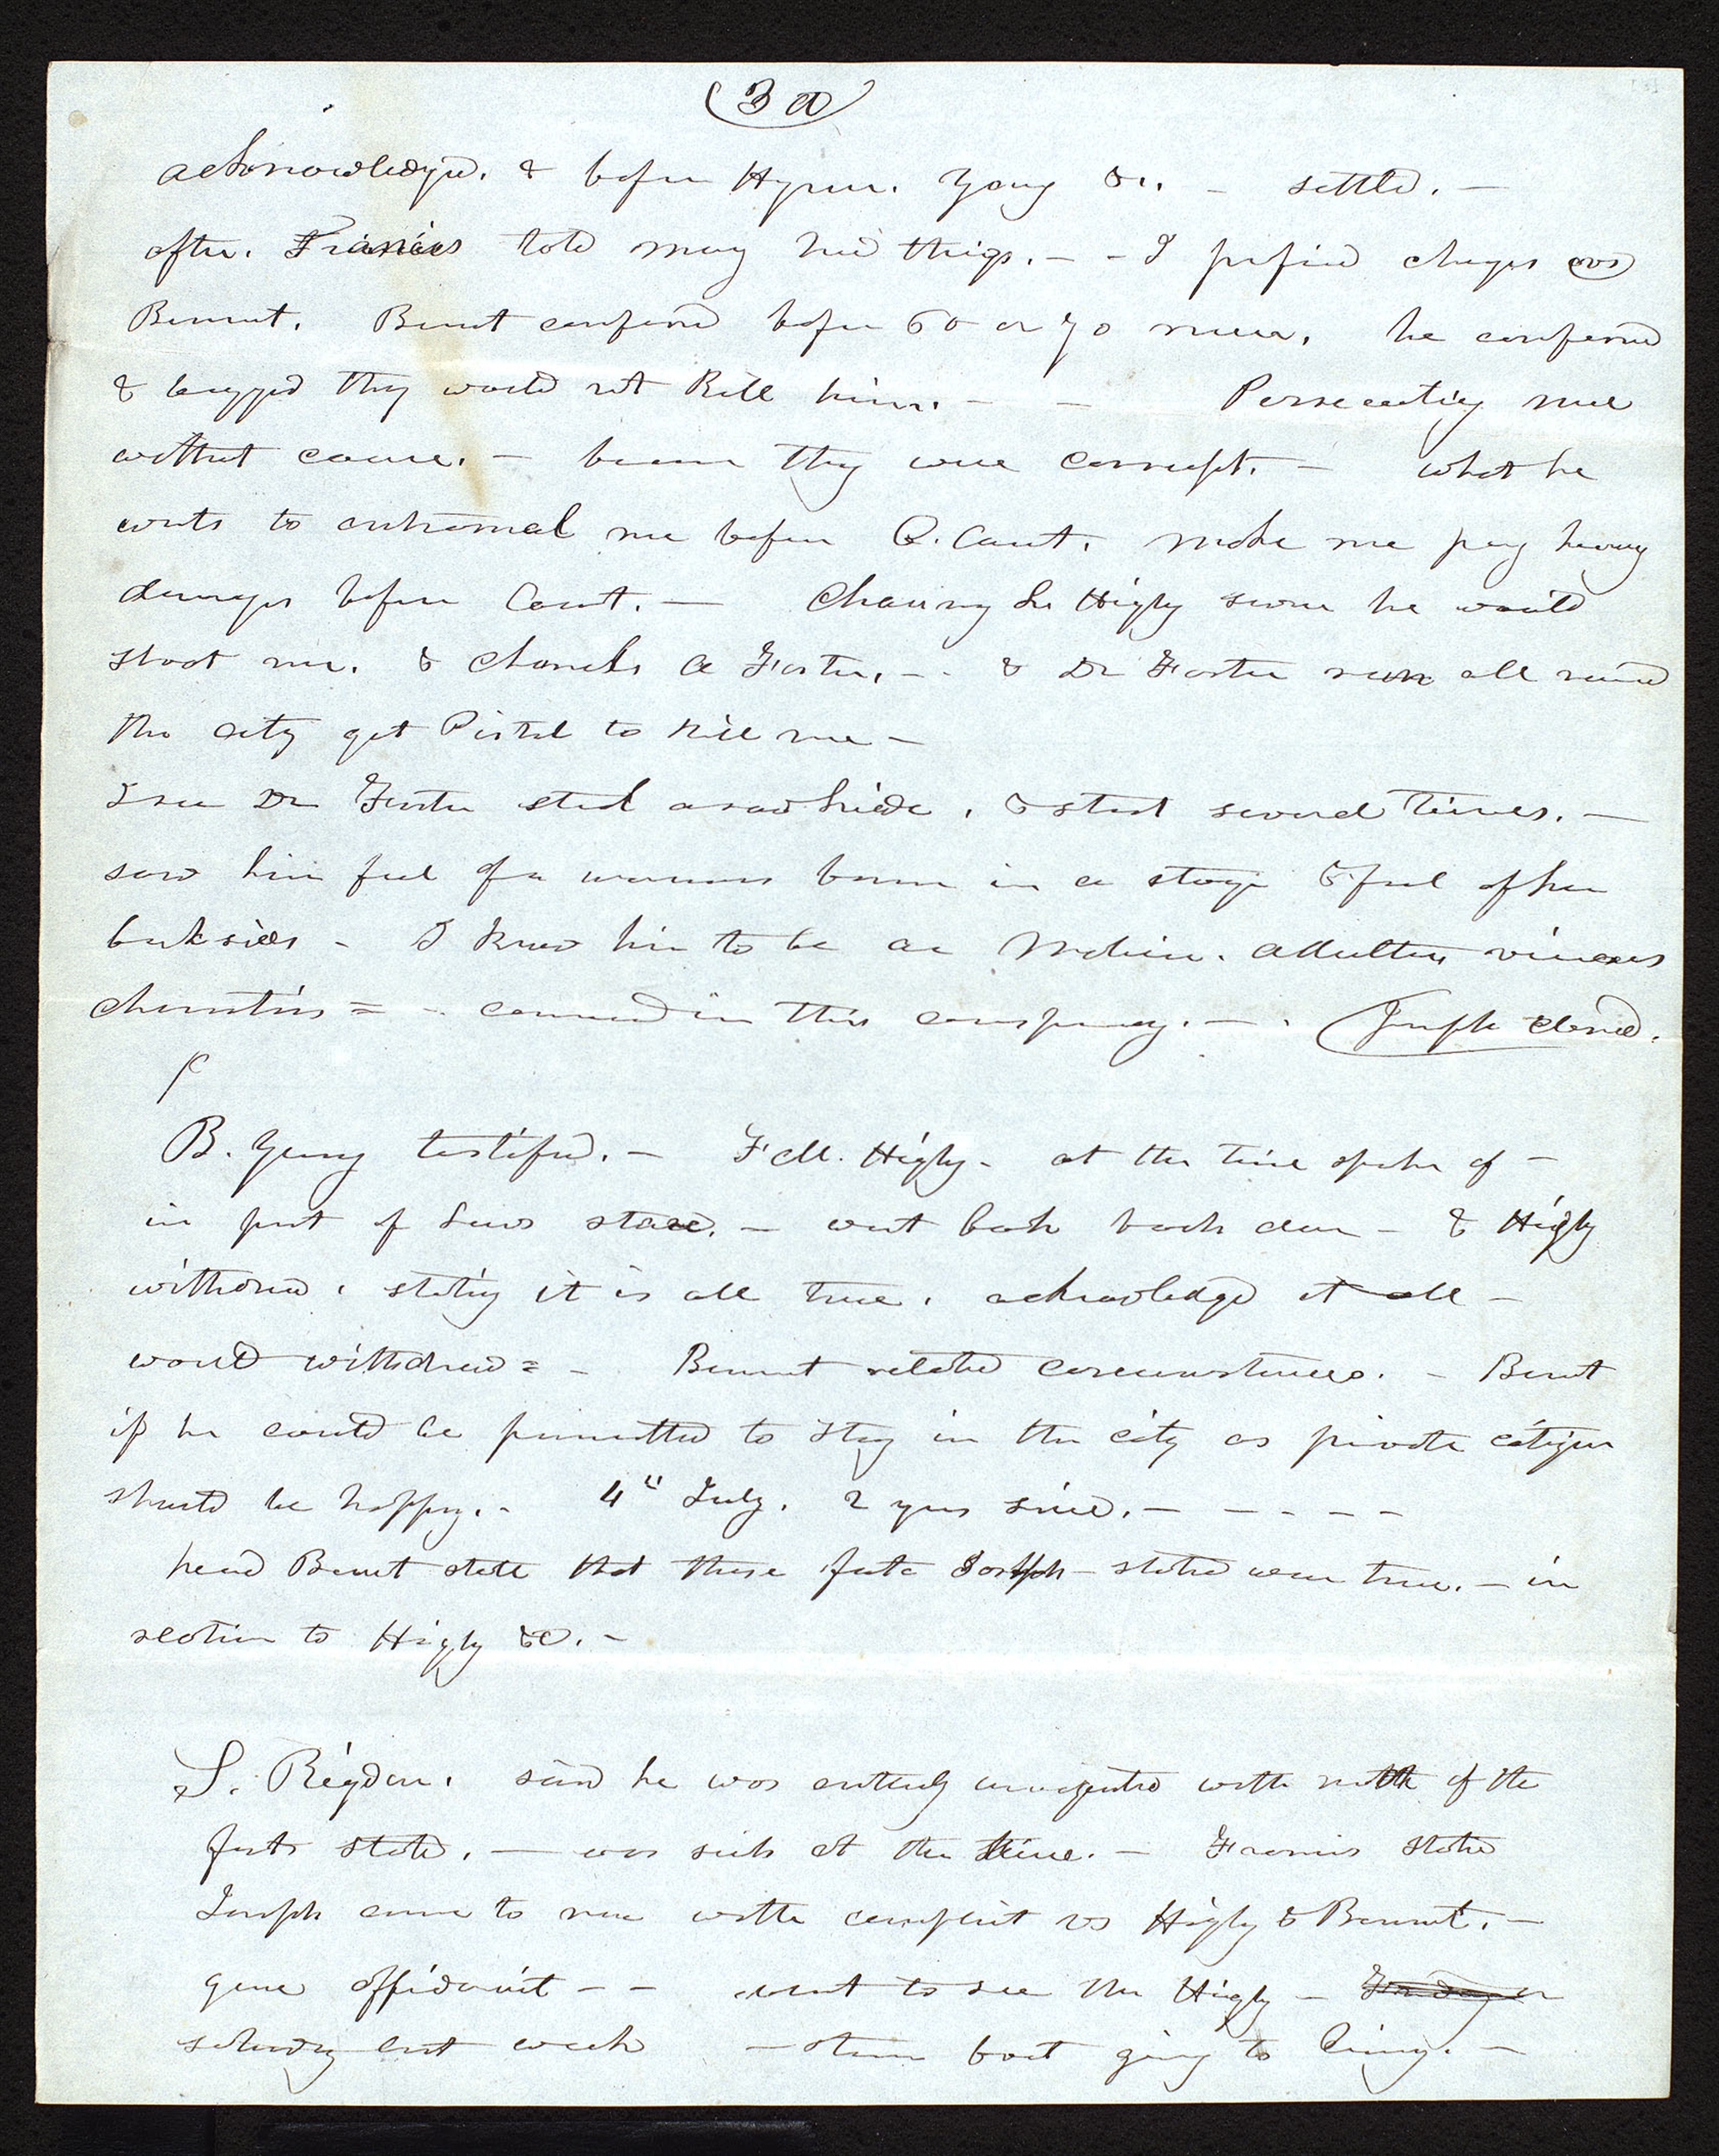 (3 a)
acknowledged. & before Hyrum. Young &c. - settled. -
after. Francis told many hied things. - - I prefired charges vs
Bennet. Bennet confessed before 60 or 70 men. he confessed
& begged they would not kill him. - - Persecuting me
without cause. - because they were corrupt. - what he
wants to me before C. Court. make me pay heavy
damages before Court. - Chauncy L. Higby swore he would
shoot me. & Charles A Foster. - & Dr Foster run all round
the city get Pistol to kill me -
I see Dr Foster steal a raw hide, & steal several times. -
saw him feel of a womans bosom in a stage & feel of her
backsides - I know him to be a adulterer vicious
character = - in this conspiracy. - . Joseph closed.
B. Young testified. - F. M. Higby - at the time spoke of -
in part of Laws stated. - went back back down - & Higby
withdrew. stating it is all true. acknowledged it all -
would withdraw = - Bennet related circumstances. - Bennet
if he could be permitted to stay in the city as private citizen
should be happy. - 4th July. 2 years since. - - - - -
heard Bennet state that these facts Joseph - stated were true. - in
relation to Higby &c. -
S. Rigdon. said he was entirely unacquainted with of the
facts stated. - was sick at the time. - Francis stated
Joseph came to me with complaint vs Higby & Bennet. -
gave affidavit - - went to see the Higby - Friday or
saturday last week - steam boat going to Quincy. -